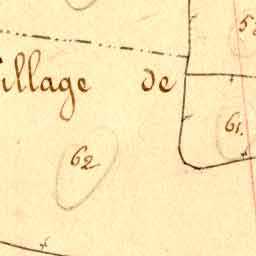 Village de
61.
62